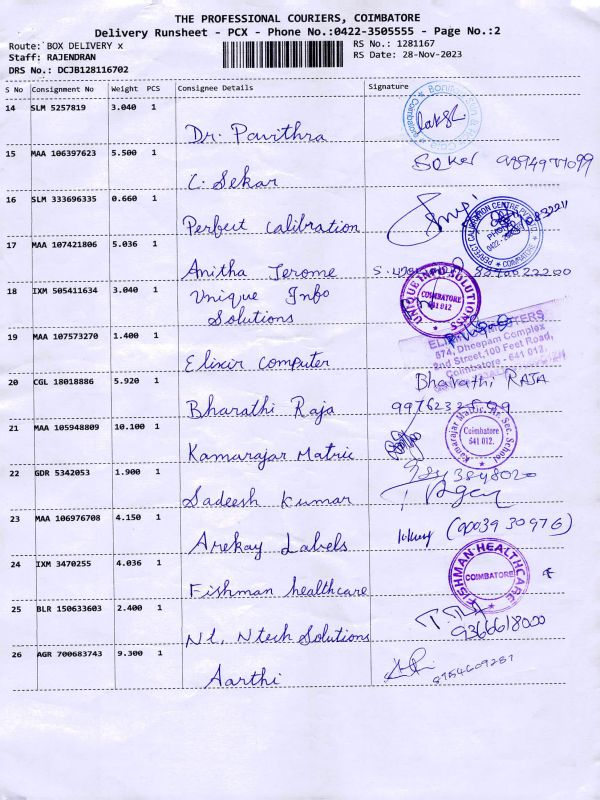 THE PROFESSIONAL COURIERS, COIMBATORE
Delivery Runsheet - PCX - Phone No.:0422-3505555 - Page No.:2
Route: BOX DELIVERY x
RS No.: 1281167
Staff: RAJENDRAN
RS Date: 28-Nov-2023
DRS No.: DCJB128116702
S No Consignment No Weight PCS Consignee Details Signature
14 SLM 5257819 3.040 1
Dr. Pavithra
15 MAA 106397623 5.500 1
C. Sekar
16 SLM 333696335 0.660 1
Perfect Calibration
PERFECT CALIBRATION CENTRE COIMBATORE
17 MAA 107421806 5.036 1
Anitha Jerome
18 IXM 505411634 3.040 1
Unique Info
Solutions
UNIQUE INFO SOLUTIONS
COIMBATORE
641 012
19 MAA 107573270 1.400 1
Elixir Computer
874, Dheepam Complex
2nd Street, 100 Feet Road,
Coimbatore - 641 012.
20 CGL 18018886 5.920 1
Bharathi Raja
Bharathi RAJA
21 MAA 105948809 10.100 1
Kamarajar Matric
Kamarajar Matric. Hr. Sec. School
Coimbatore
641 012.
22 GDR 5342053 1.900 1
Sadeesh Kumar
23 MAA 106976708 4.150 1
Arekay Labels
(90039 30976)
24 IXM 3470255 4.036 1
Fishman healthcare
FISHMAN HEALTHCARE
COIMBATORE
25 BLR 150633603 2.400 1
Nl. Ntech Solutions
9366618000
26 AGR 700683743 9.300 1
Aarthi